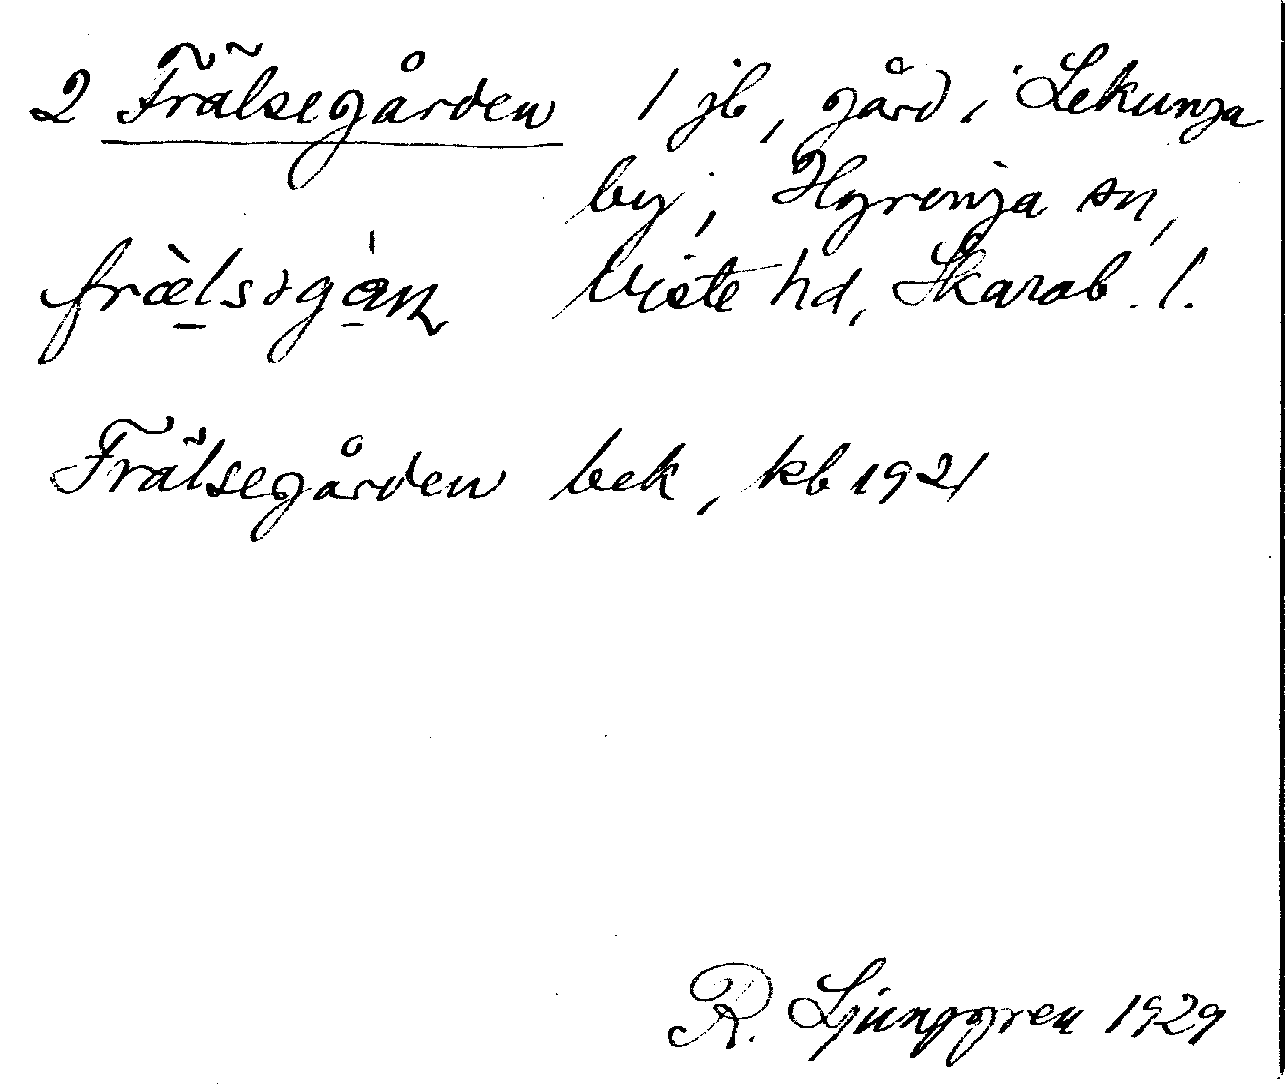 2 Frälsegården 1 jb, gård i Lekunga
by, Hyringa sn,
fræ̀lsəgán Viste hd, Skarab. l.
Frälsegården bek, kb 1921
R. Ljunggren 1929